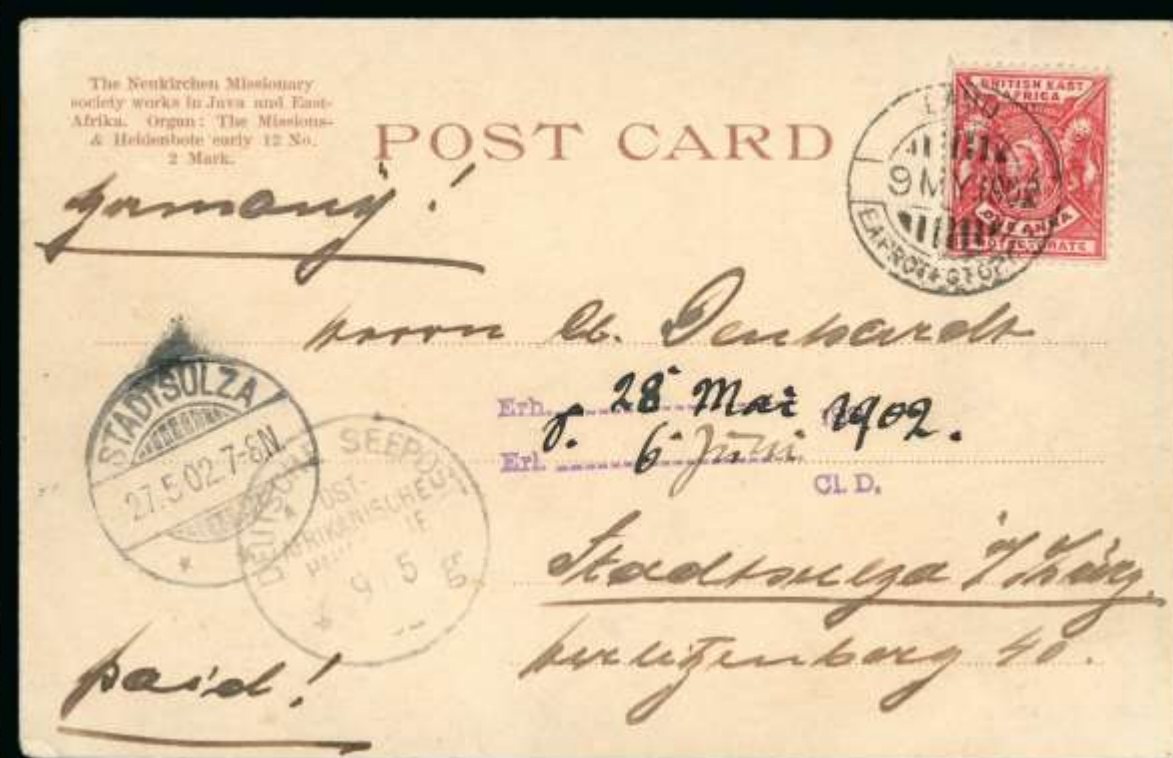 The Neukirchen Missionary
society works in Java and East-
Afrika. Organ: The Missions-
& Heidenbote early 12 No.
2 Mark.
POST CARD
BRITISH EAST
AFRICA
ONE ANNA
PROTECTORATE
LAMU
9 MY 1902
Germany!
Herrn Cl. Denhardt
Erh. 28 Mai 1902.
Erl. 6 Juni
Cl. D.
STADTSULZA
27.5.02.7-8N.
DEUTSCHE SEEPOST
OST-
AFRIKANISCHE
9 5
Stadtsulza i/Thürg.
40.
paid!